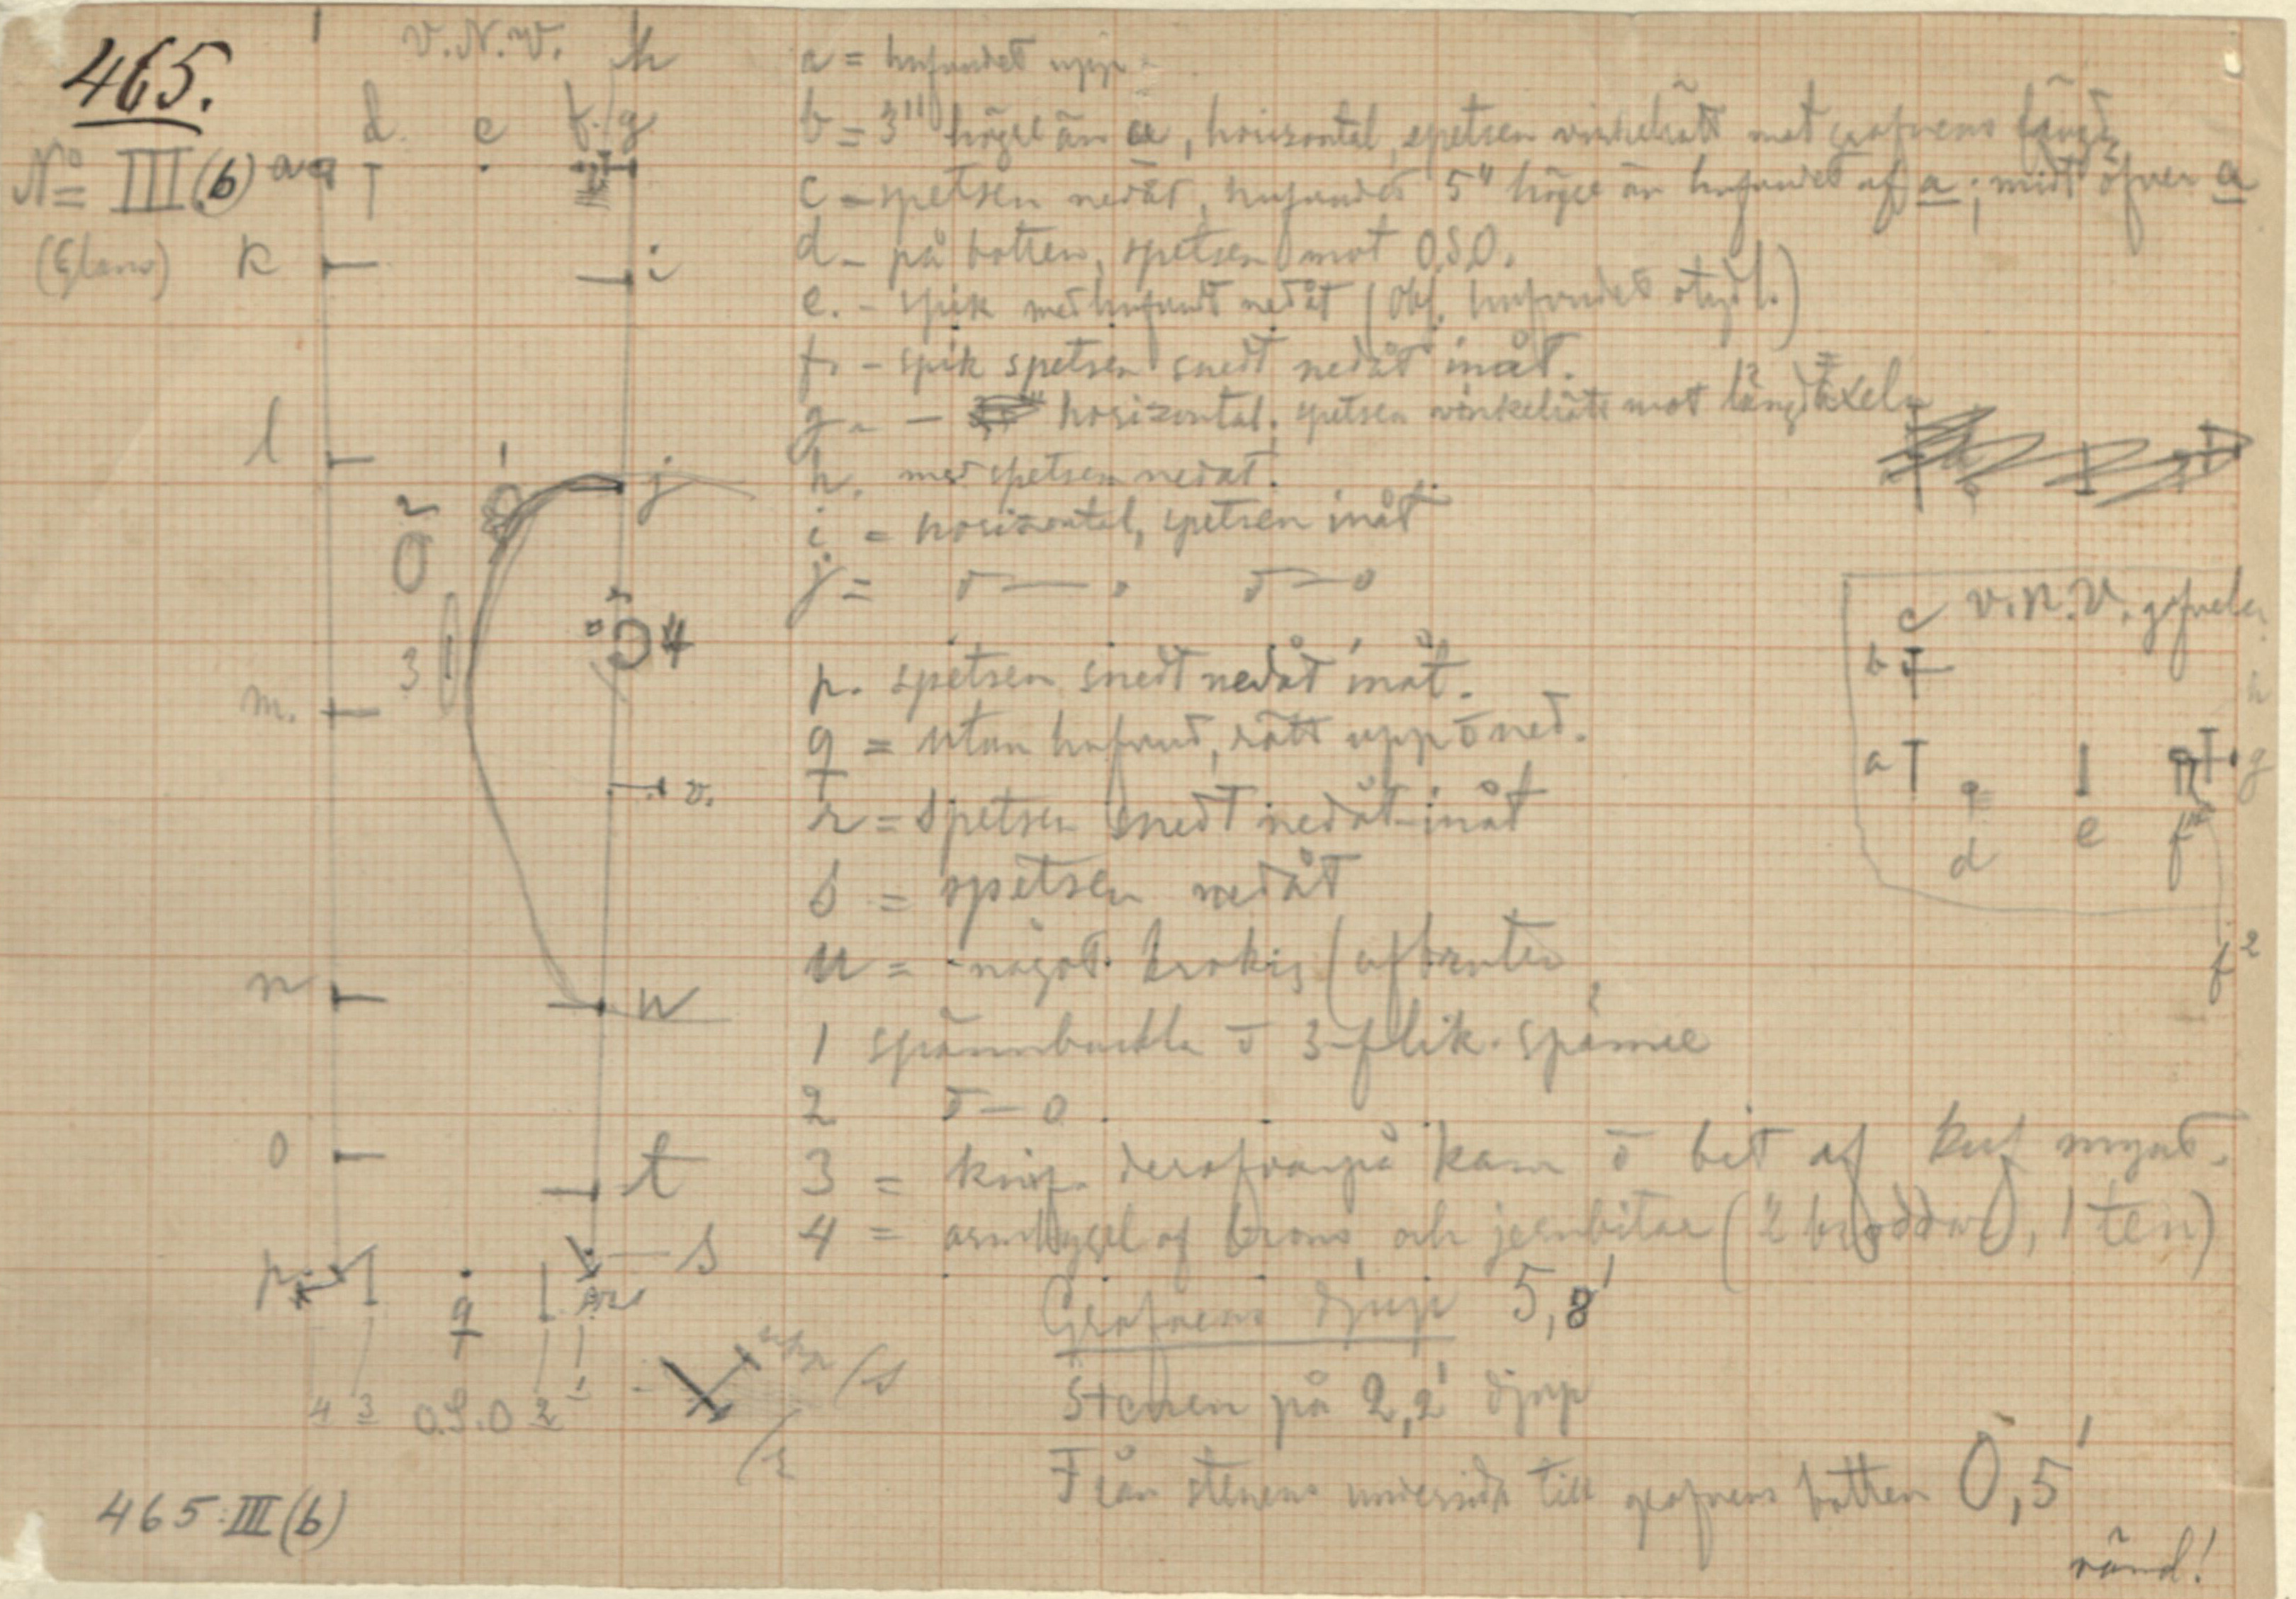 465.
V.N.V.
h
d. e f. g
No III (b) a
(Elans) k
i
l
1
j
2
3
4
m.
v.
n
u
o
t
p.
s
q
r
4 3 O.S.O 2 1
s
r
465 III (b)
a = hufvudet upp
b = 3" högre än a, horisontal, spetsen vinkelrätt mot grafvens längd
c = spetsen nedåt, hufvudet 5" högre än hufvudet af a; midt öfver a
d - på botten, spetsen mot O.S.O.
e. - spik med hufvudt nedåt (Obs. hufvudet otydl.)
f. - spik spetsen snedt nedåt inåt.
g. - horizontal. spetsen vinkelrätt mot längdaxeln
h. med spetsen nedåt.
i = horisontal, spetsen inåt
j = o
p. spetsen snedt nedåt inåt.
q = utan hufvud, rätt upp o ned.
r = Spetsen snedt nedåt-inåt
s = spetsen nedåt
u = något krokig (afbruten
1 spännbuckla o 3-flik. spänne
2
3 = knif. derofvanpå kam o bit af
4 = armbygel af brons och jernbitar (2 broddar, 1 ten)
Grafvens djup 5,8'
Stenen på 2,2' djup
Från stenens undersida till grafvens botten 0,5'
vänd!
c V.N.V. gafveln
b
h
a
g
d
e
f
f2